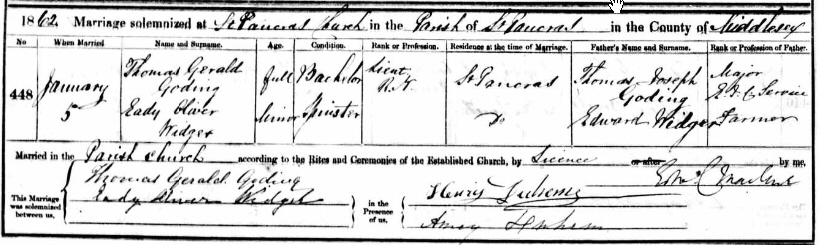 1862. Marriage solemnized at St Pancras Church in the Parish of St Pancras in the County of Middlesex
No When Married Name and Surname. Age. Condition. Rank or Profession. Residence at the time of Marriage. Father's Name and Surname. Rank or Profession of Father.
448 January 5 Thomas Gerald Goding full Bachelor Lieut R.N. St Pancras Thomas Joseph Goding Major E.I.C. Service
Eady Oliver Widger Minor Spinster Do Edward Widger Farmer
Married in the Parish church according to the Rites and Ceremonies of the Established Church, by Licence or after by me,
This Marriage was solemnized between us, Thomas Gerald Goding in the Presence of us, Henry
Eady Oliver Widger Amoy